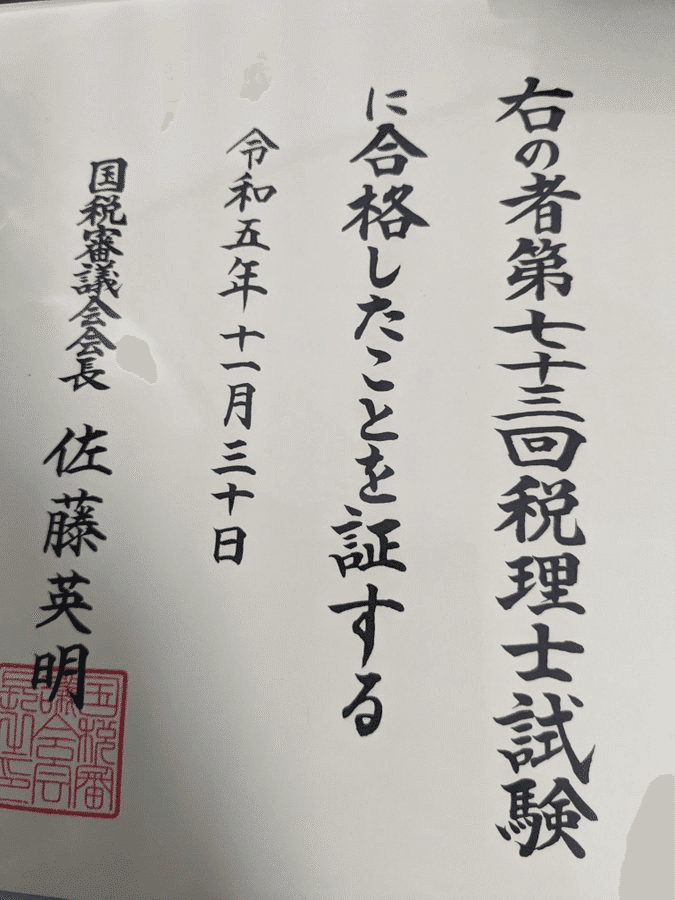 右の者第七十三回税理士試験
に合格したことを証する
令和五年十一月三十日
国税審議会会長 佐藤英明
国税審
議会会
長之印